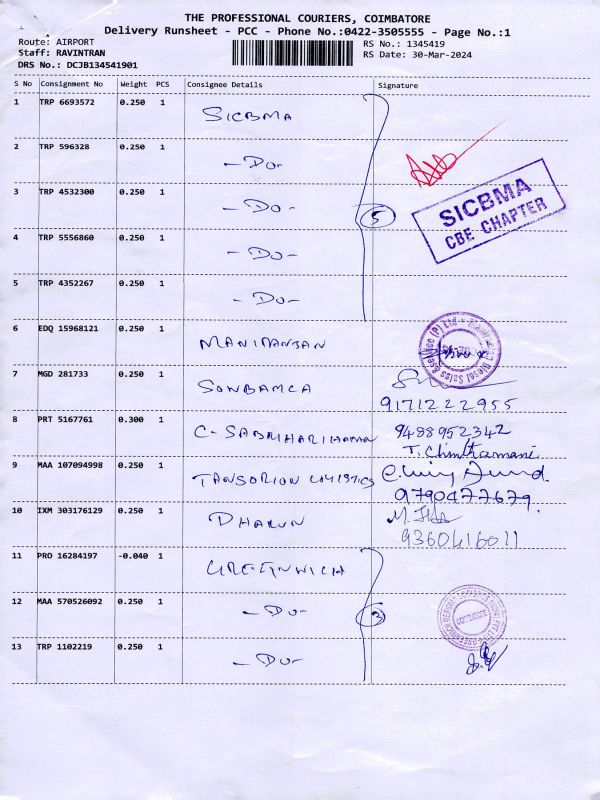 THE PROFESSIONAL COURIERS, COIMBATORE
Delivery Runsheet - PCC - Phone No.:0422-3505555 - Page No.:1
Route: AIRPORT RS No.: 1345419
Staff: RAVINTRAN RS Date: 30-Mar-2024
DRS No.: DCJB134541901
S No Consignment No Weight PCS Consignee Details Signature
1 TRP 6693572 0.250 1 SICBMA
2 TRP 596328 0.250 1 -DO-
3 TRP 4532300 0.250 1 -DO- 5 SICBMA
CBE CHAPTER
4 TRP 5556860 0.250 1 -DO-
5 TRP 4352267 0.250 1 -DO-
6 EDQ 15968121 0.250 1
7 MGD 281733 0.250 1
9171222955
8 PRT 5167761 0.300 1 9488952342
T. Chinthamani
9 MAA 107094998 0.250 1
9790477679.
10 IXM 303176129 0.250 1 DHARUN
9360416011
11 PRO 16284197 -0.040 1
12 MAA 570526092 0.250 1 -DO- 3 COIMBATORE
13 TRP 1102219 0.250 1 -DO-